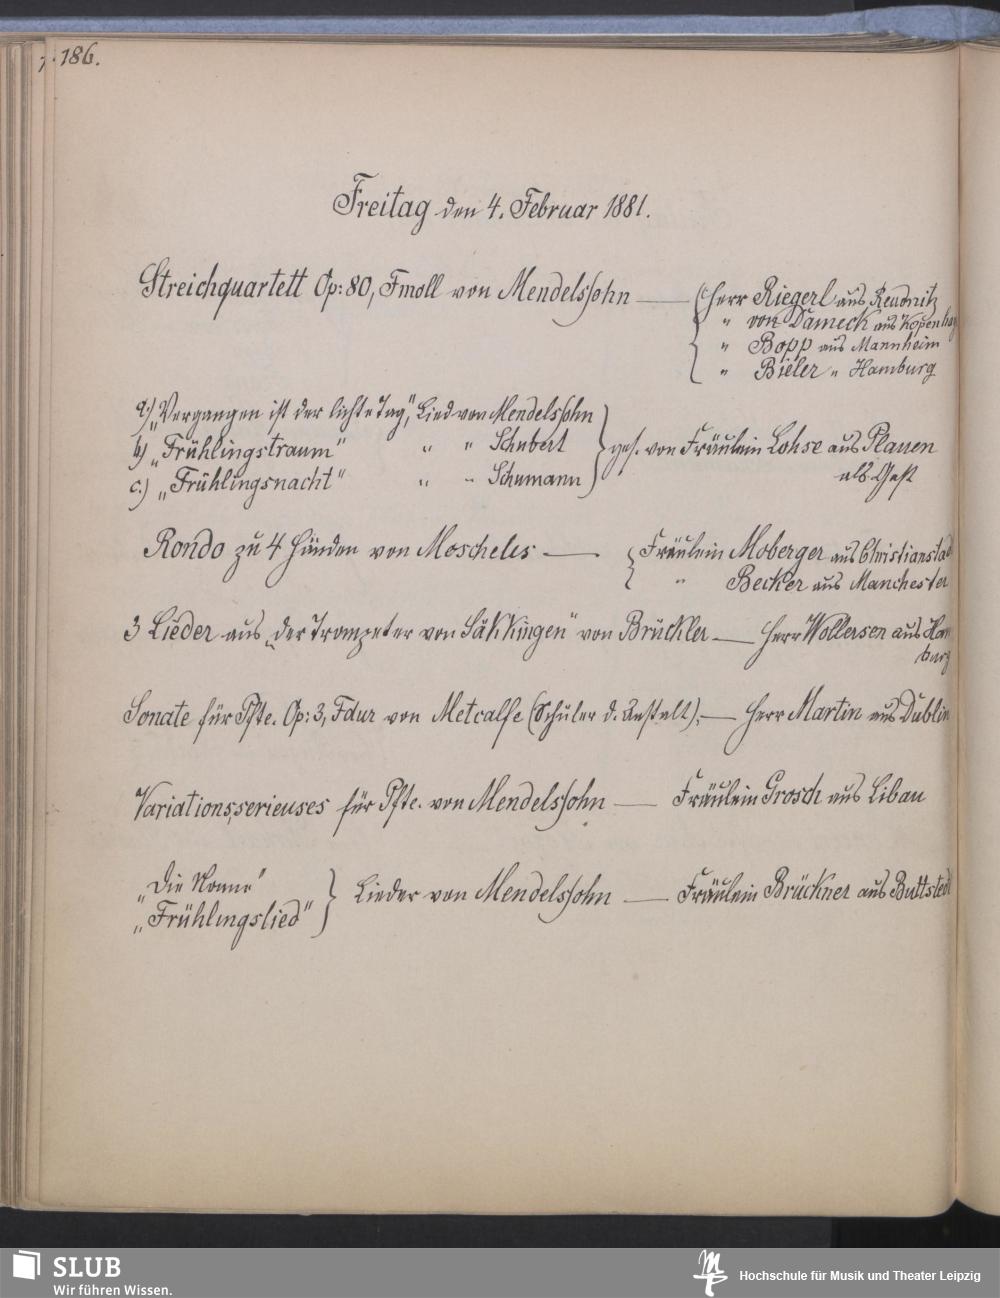 186.
Freitag den 4. Februar 1881.
Streichquartett Op: 80, Fmoll von Mendelssohn — Herr Riegerl aus Reudnitz
" von Dameck aus Kopenhag
" Bopp aus Mannheim
" Bieler " Hamburg
a.) „Vergangen ist der lichte Tag", Lied von Mendelssohn
b) „Frühlingstraum" " " Schubert
c.) „Frühlingsnacht" " " Schumann
ges. von Fräulein Lohse aus Plauen
als Gast
Rondo zu 4 Händen von Moscheles — Fräulein Moberger aus Christianstad
" Becker aus Manchester
3 Lieder aus „der Trompeter von Säkkingen" von Brückler — Herr Wollersen aus Ham
burg
Sonate für Pfte. Op: 3, Fdur von Metcalfe (Schüler d. Anstalt), — Herr Martin aus Dublin
Variations serieuses für Pfte. von Mendelssohn — Fräulein Grosch aus Libau
„Die Nonne"
„Frühlingslied"
Lieder von Mendelssohn — Fräulein Brückner aus Buttstedt
SLUB
Wir führen Wissen.
Hochschule für Musik und Theater Leipzig